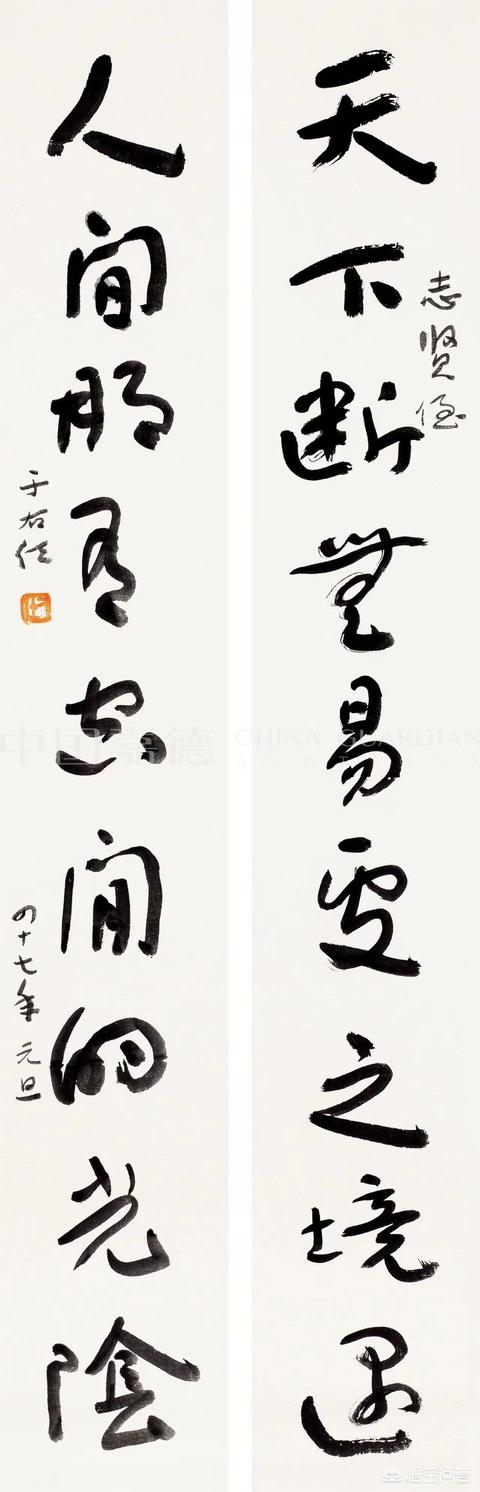 天下斷無易處之境遇
志賢侄
人間那有空閒的光陰
于右任
四十七年元旦
中国嘉德
CHINA GUARDIAN
AUCTIONS
悟空问答